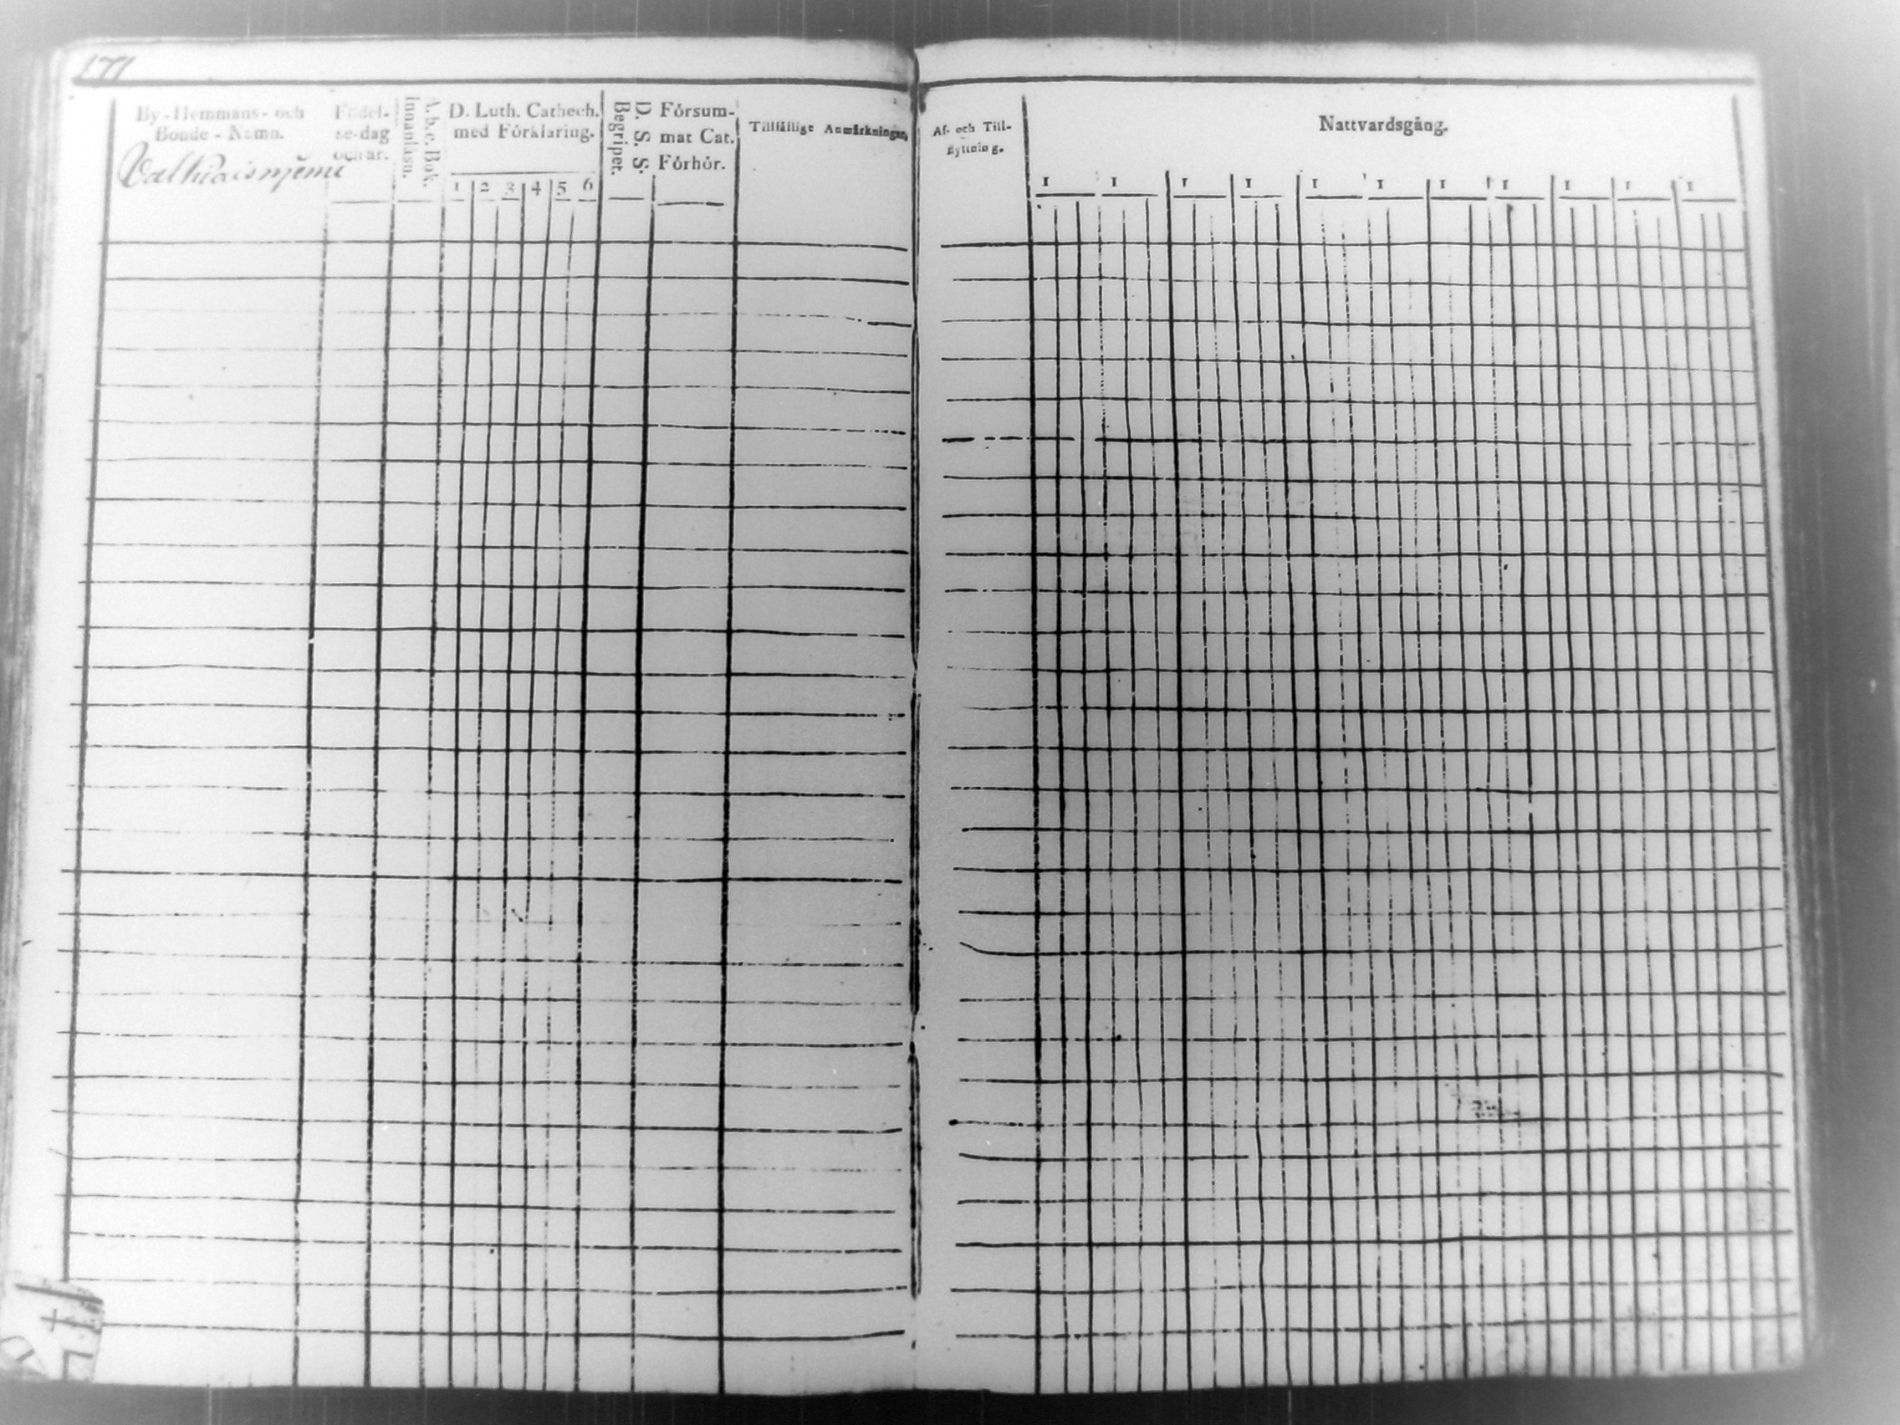 171
By-Hemmans- och
Bonde-Namn.
Valkiaisnjemi
Födel-
se-dag
och år.
A.b.c. Bok.
Innanläsn.
D. Luth. Cathech.
med Förklaring.
1 2 3 4 5 6
D. S. S.
Begripet.
Försum-
mat Cat.
Förhör.
Tillfällige Anmärkningar.
Af- och Till-
flyttning.
Nattvardsgång.
1 1 1 1 1 1 1 1 1 1 1